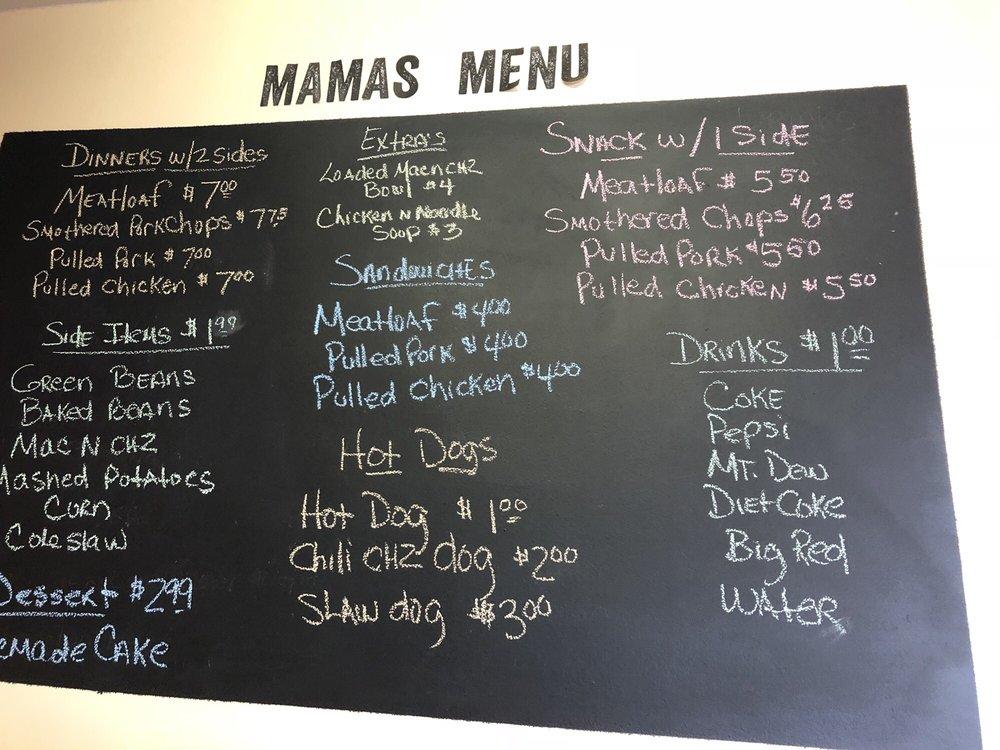 MAMAS MENU
DINNERS W/2 SIDES
MEATLOAF $7.00
SMOTHERED PORK CHOPS $7.75
Pulled Pork $7.00
Pulled Chicken $7.00
SIDE ITEMS $1.99
GREEN BEANS
BAKED BEANS
MAC N CHZ
Mashed Potatoes
CORN
Coleslaw
Dessert $2.99
emade CAKE
EXTRA'S
LOADED MACNCHZ
BOWL $4
Chicken N Noodle
Soup $3
SANDWICHES
MEATLOAF $4.00
Pulled Pork $4.00
Pulled Chicken $4.00
Hot Dogs
Hot Dog $1.00
Chili CHZ dog $2.00
SLAW dog $3.00
SNACK W/1 SIDE
MEATLOAF $5.50
SMOTHERED CHOPS $6.25
Pulled PORK $5.50
Pulled Chicken $5.50
DRINKS $1.00
COKE
Pepsi
MT. DEW
DIET COKE
Big Red
WATER